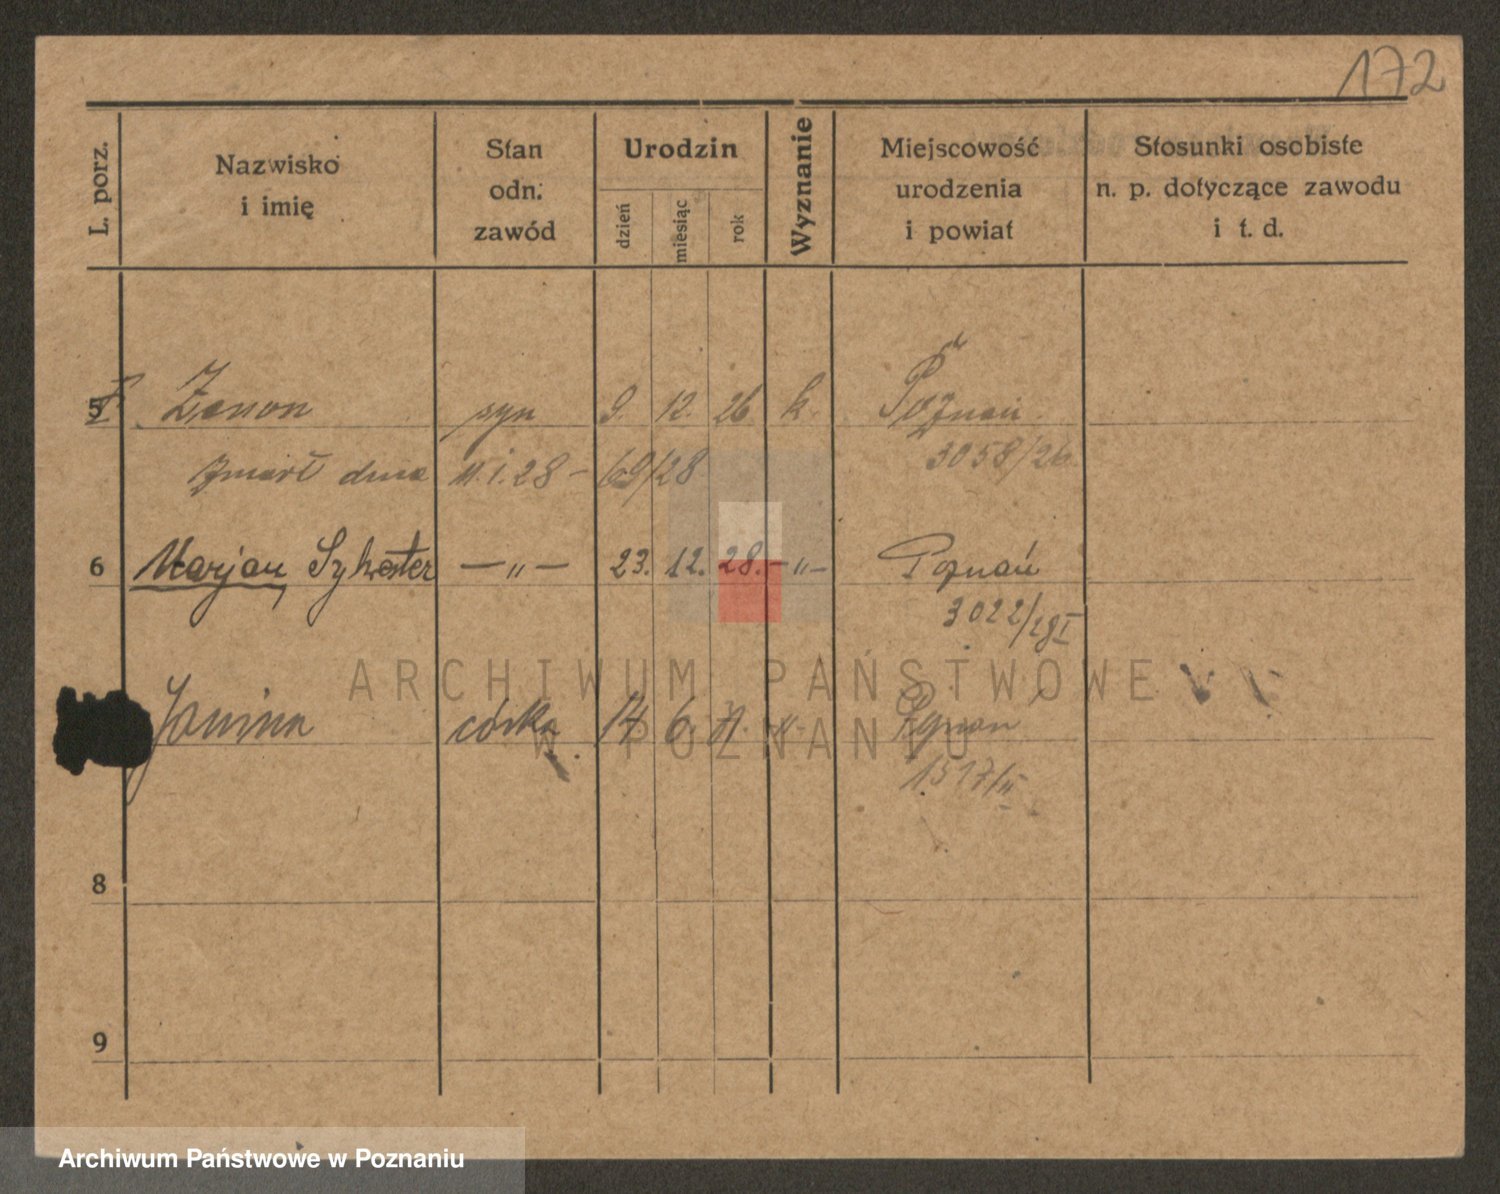 172
L. porz.
Nazwisko
i imię
Stan
odn.
zawód
Urodzin
dzień
miesiąc
rok
Wyznanie
Miejscowość
urodzenia
i powiat
Stosunki osobiste
n. p. dotyczące zawodu
i t. d.
5 Zenon syn 9. 12. 26 k. Poznań
3058/26
zmarł dnia 11.1.28 – 69/28
6 Marjan Sylwester — „ — 23. 12. 28. – „ – Poznań
3022/28 I
ARCHIWUM PAŃSTWOWE
W POZNANIU
Janina córka 14 6. Poznań
1517/II
8
9
Archiwum Państwowe w Poznaniu